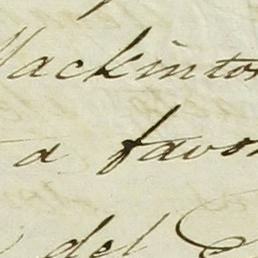 Mackinto
a favor
del